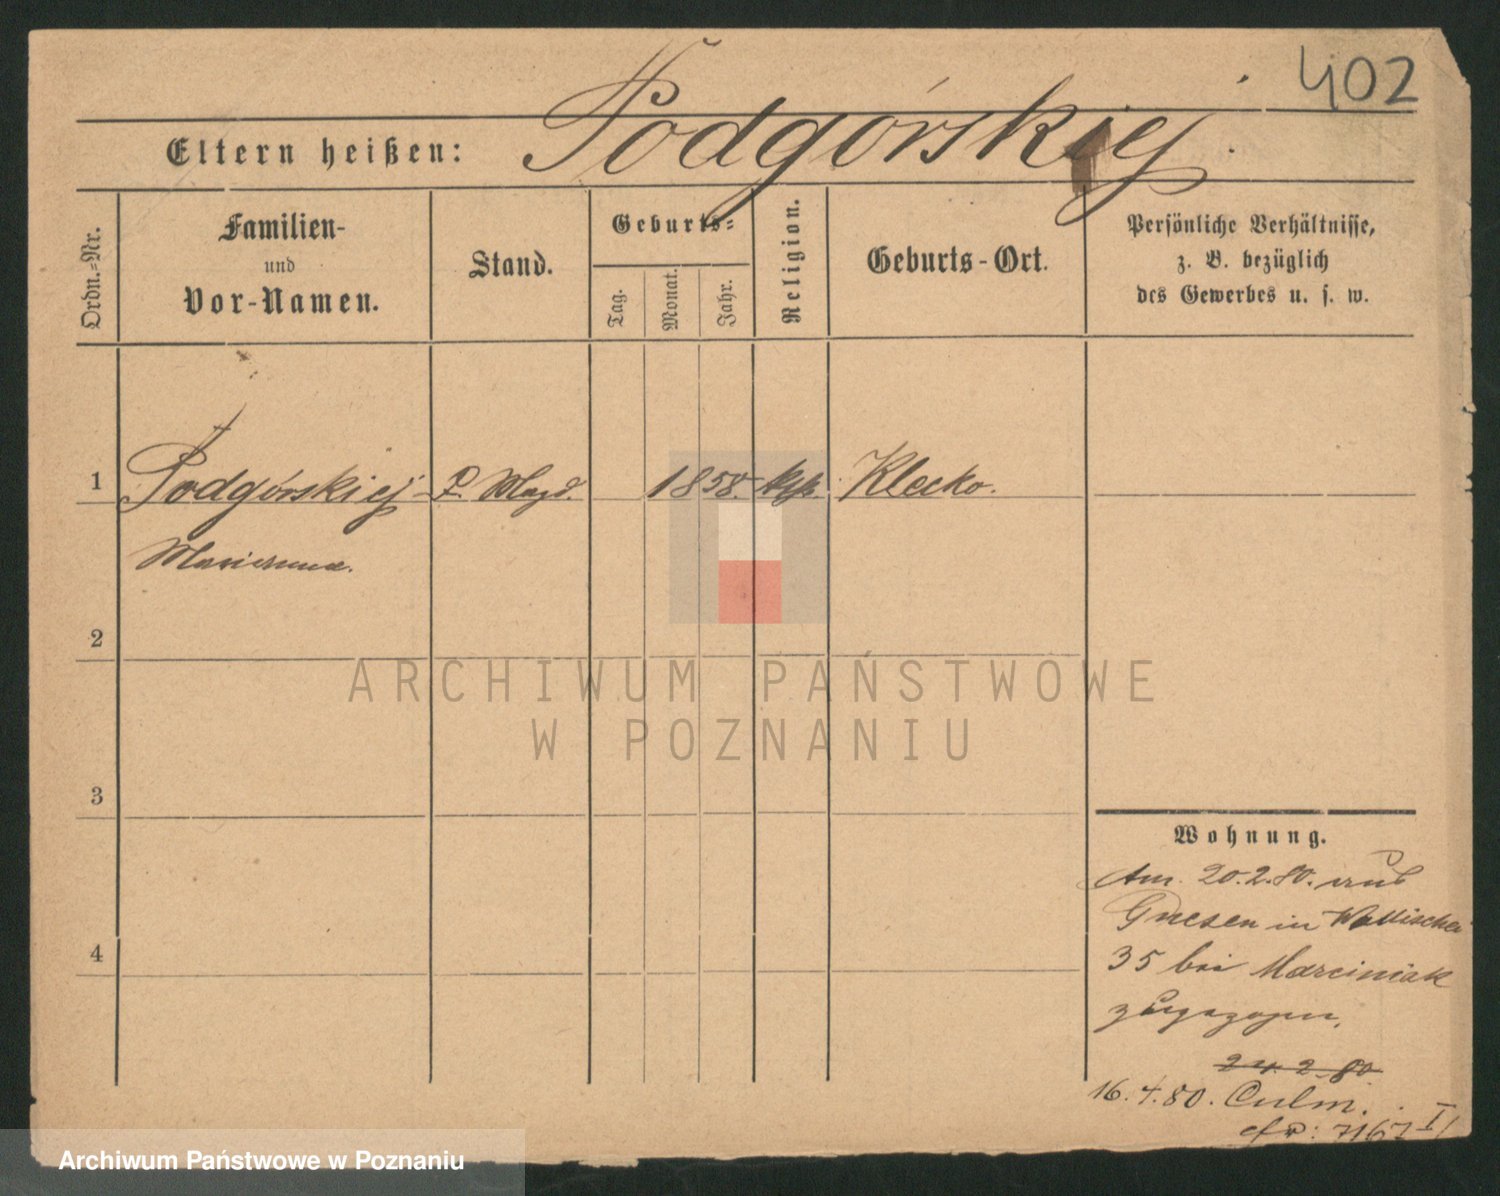 402
Eltern heißen: Podgórskiej.
Ordn.-Nr.
Familien-
und
Vor-Namen.
Stand.
Geburts-
Tag.
Monat.
Jahr.
Religion.
Geburts-Ort.
Persönliche Verhältnisse,
z. B. bezüglich
des Gewerbes u. s. w.
1 Podgórskiej P. Magd. 1858. kth. Klecko.
Marianna.
2
3
4
Wohnung.
Am 20.2.80. aus
Gnesen in Wallischei
35 bei Marciniak
zugezogen.
24.2.80
16.4.80. Culm.
7167 II
ARCHIWUM PAŃSTWOWE
W POZNANIU
Archiwum Państwowe w Poznaniu